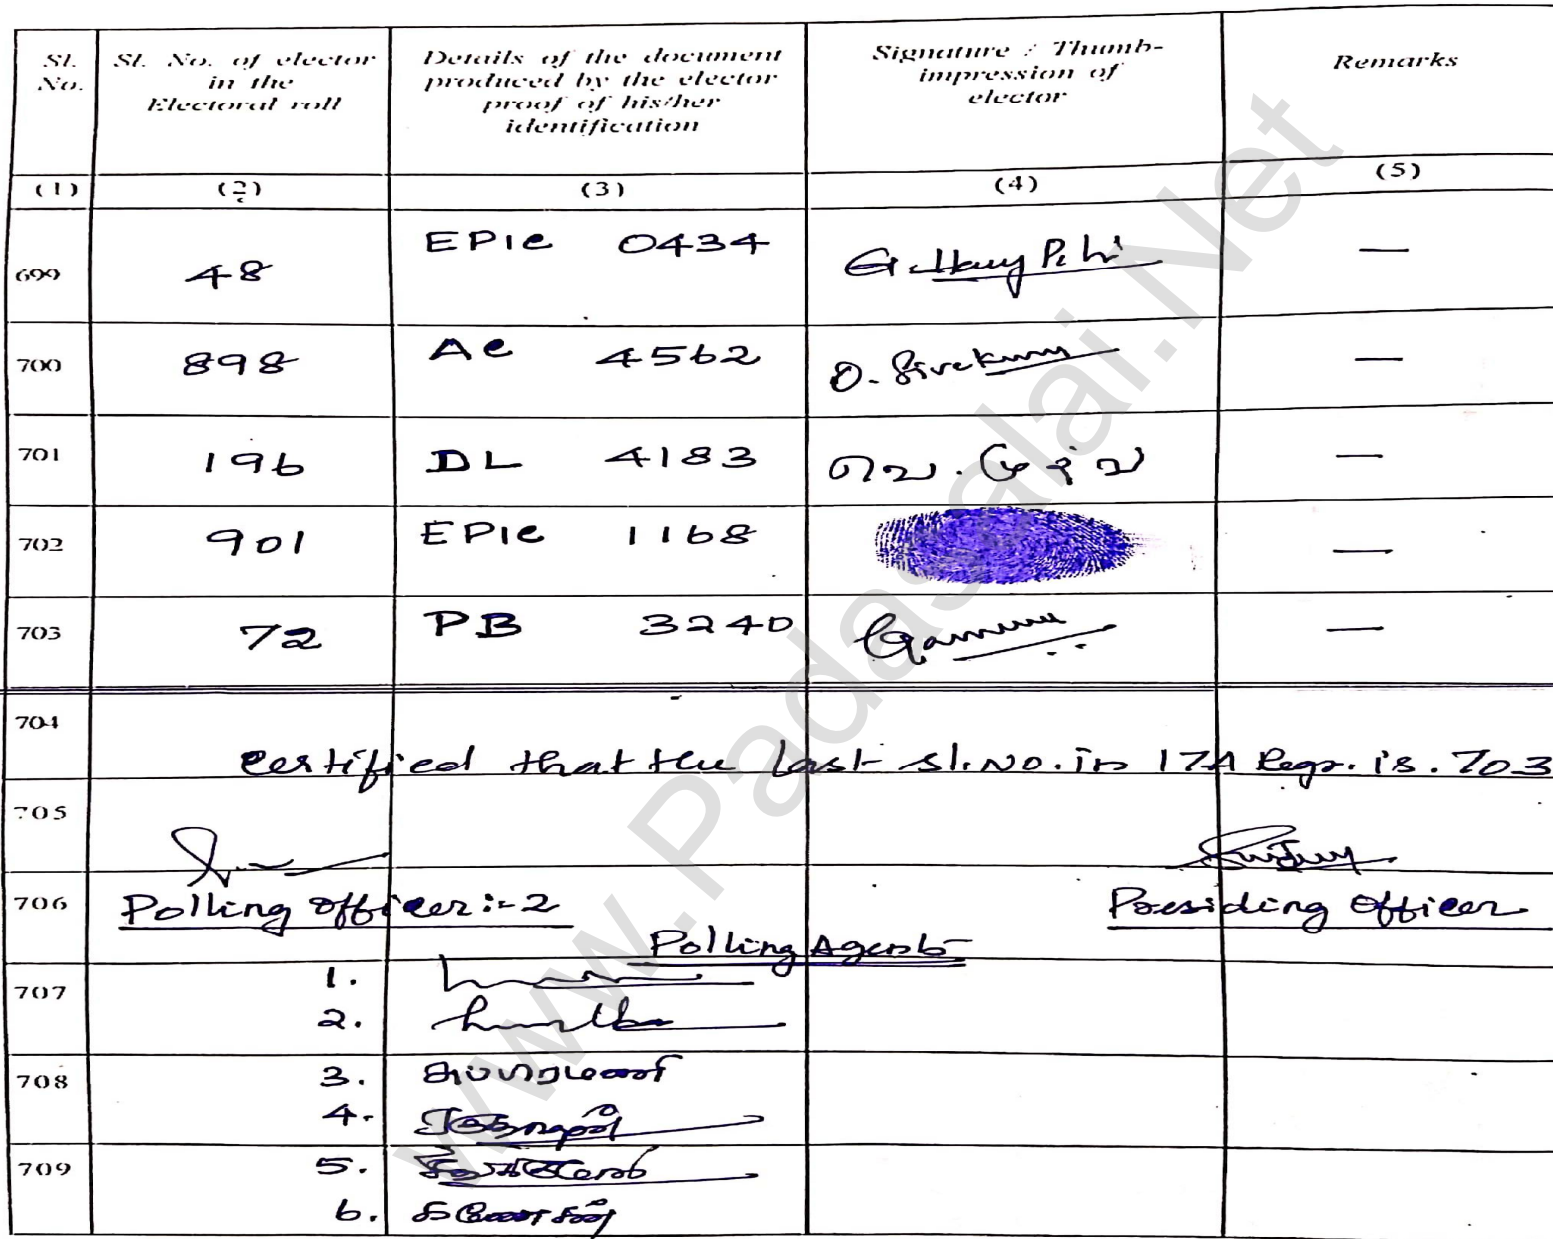 Sl. No.
Sl. No. of elector in the Electoral roll
Details of the document produced by the elector proof of his/her identification
Signature / Thumb-impression of elector
Remarks
(1) (2) (3) (4) (5)
699 48 EPIC 0434 —
700 898 AC 4562 —
701 196 DL 4183 —
702 901 EPIC 1168 —
703 72 PB 3240 —
704
Certified that the last Sl. No. in 17A Regr. is. 703
705
706 Polling Officer:-2 Presiding Officer
Polling Agents
707 1.
2.
708 3.
4.
709 5.
6.
www.Padasalai.Net